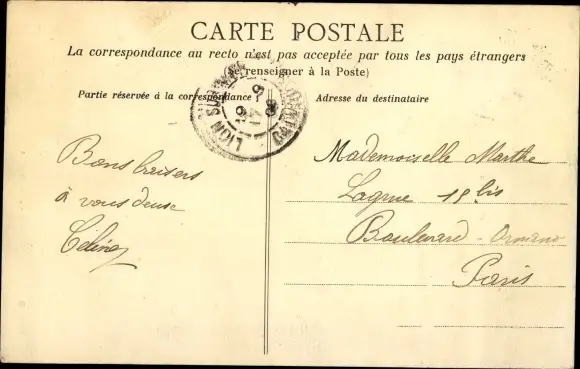 CARTE POSTALE
La correspondance au recto n'est pas acceptée par tous les pays étrangers
(Se renseigner à la Poste)
Partie réservée à la correspondance
Adresse du destinataire
LION SUR MER
CALVADOS
Bons baisers
à vous deux
Céline
Mademoiselle Marthe
19 bis
Boulevard Ornano
Paris